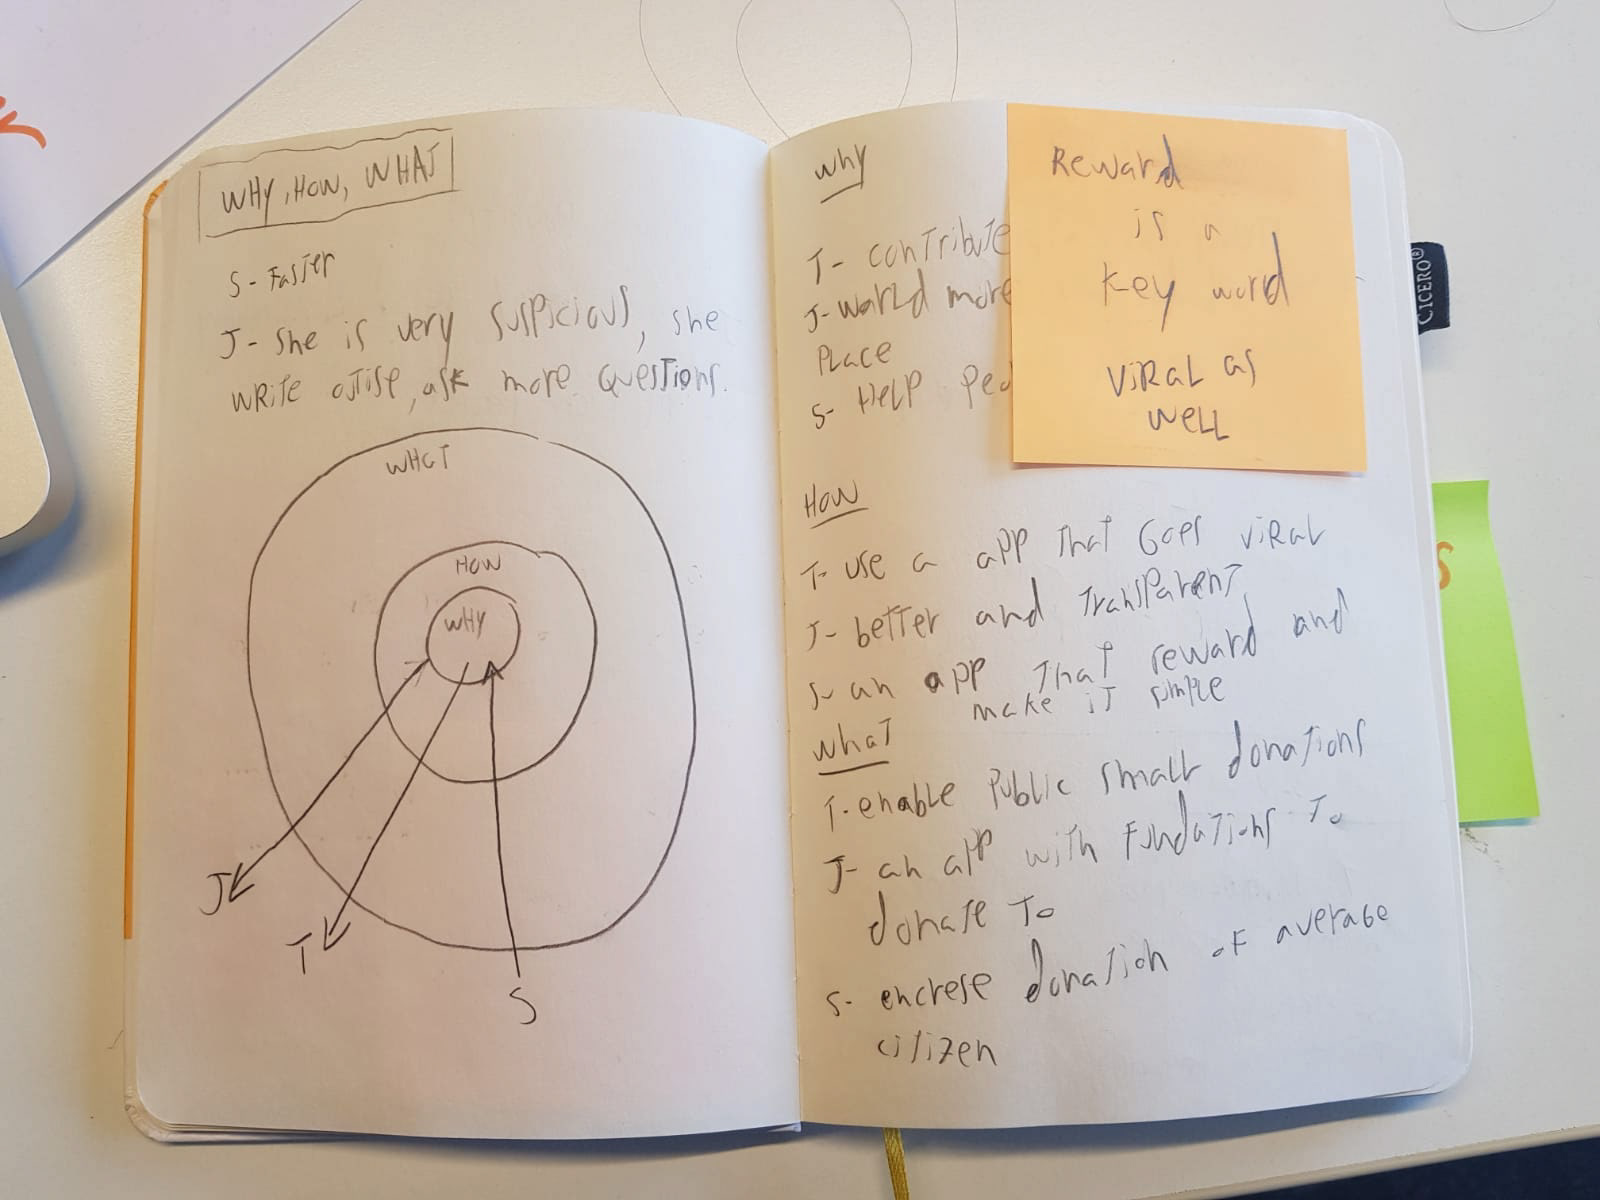 WHY, HOW, WHAT
S- Faster
J- she is very suspicious, she
write otise, ask more questions.
WHAT
HOW
WHY
J
T
S
why
T- contribute
J- world more
Place
S- Help peo
HOW
T- use a app that goes viral
J- better and transparent
S- an app that reward and
make it simple
what
T- enable public small donations
J- an app with fundations to
donate to
S- encrese donation of average
citizen
Reward
is a
key word
viral as
well
CICERO®
S